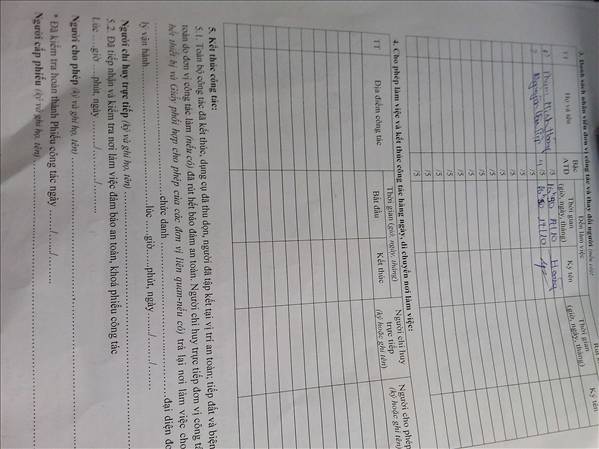 3. Danh sách nhân viên đơn vị công tác và thay đổi người (nếu có):
TT
Họ và tên
Bậc ATĐ
Đến làm việc
Thời gian (giờ, ngày, tháng)
Ký tên
Rút
Thời gian (giờ, ngày, tháng)
Ký tên
1 Minh Hoàng /5 Hoang
2 Nguyễn Văn 4 /5
/5
/5
/5
/5
/5
/5
/5
/5
/5
4. Cho phép làm việc và kết thúc công tác hàng ngày, di chuyển nơi làm việc:
TT
Địa điểm công tác
Thời gian (giờ, ngày, tháng)
Bắt đầu
Kết thúc
Người chỉ huy trực tiếp (ký hoặc ghi tên)
Người cho phép (ký hoặc ghi tên)
5. Kết thúc công tác:
5.1. Toàn bộ công tác đã kết thúc, dụng cụ đã thu dọn, người đã tập kết tại vị trí an toàn; tiếp đất và biện
toàn do đơn vị công tác làm (nếu có) đã rút hết bảo đảm an toàn. Người chỉ huy trực tiếp đơn vị công tá
hết thiết bị và Giấy phối hợp cho phép của các đơn vị liên quan-nếu có) trả lại nơi làm việc cho
..........chức danh ..........đại diện đơ
lý vận hành..........lúc ....giờ....phút, ngày ....../....../......
Người chỉ huy trực tiếp (ký và ghi họ, tên) ..........
5.2. Đã tiếp nhận và kiểm tra nơi làm việc đảm bảo an toàn, khoá phiếu công tác
Lúc ....giờ ....phút, ngày ....../....../......
Người cho phép (ký và ghi họ, tên) ..........
* Đã kiểm tra hoàn thành Phiếu công tác ngày ....../....../......
Người cấp phiếu (ký và ghi họ, tên) ..........